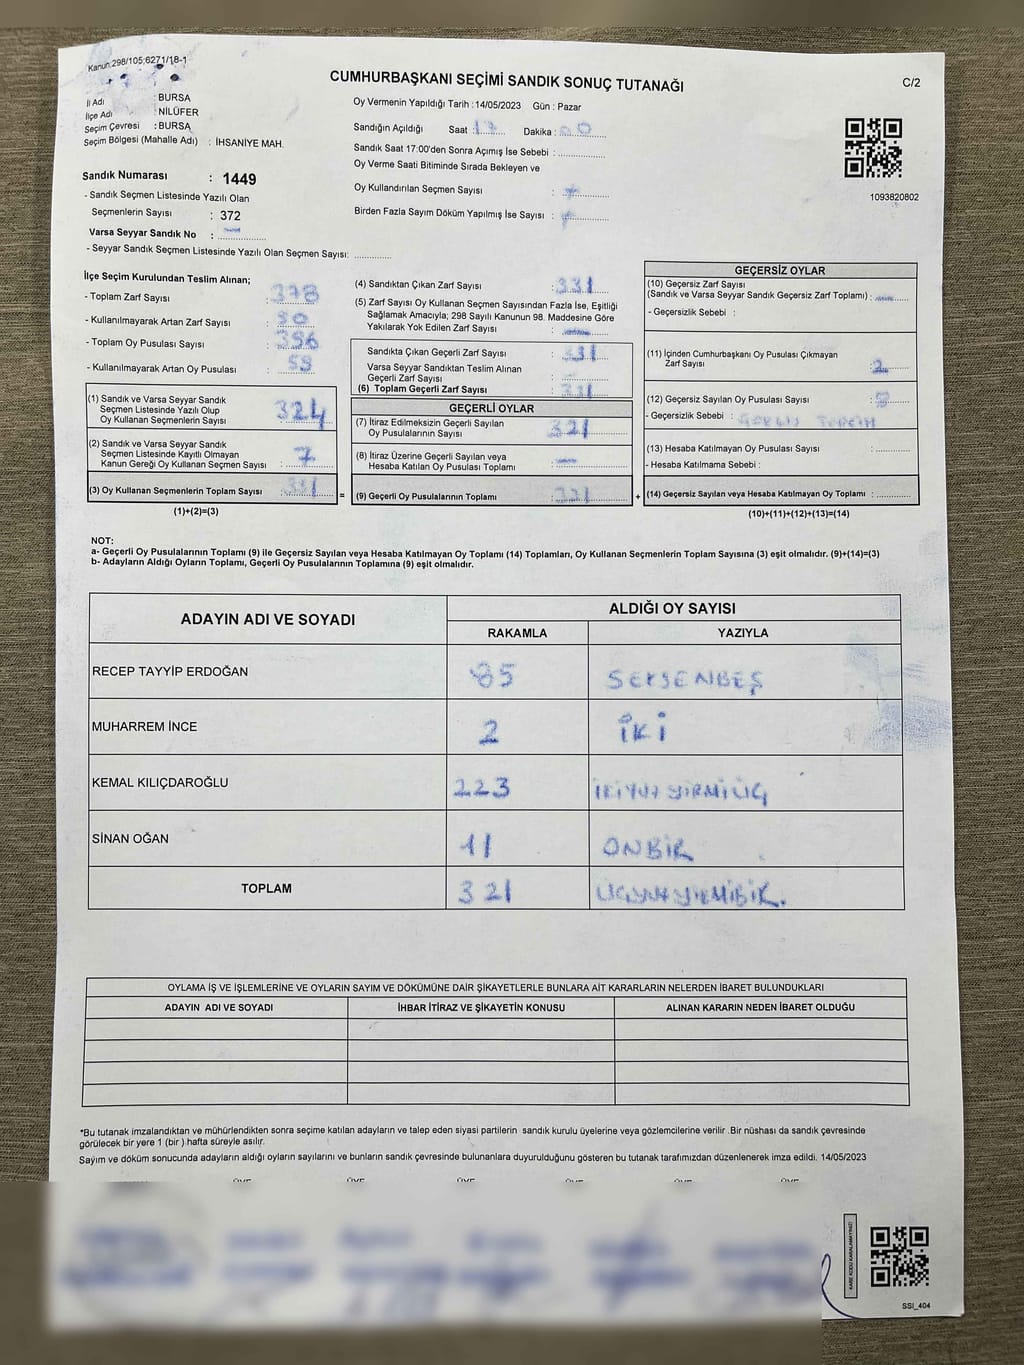 Kanun.298/105;6271/18-1
CUMHURBAŞKANI SEÇİMİ SANDIK SONUÇ TUTANAĞI
C/2
İl Adı : BURSA
İlçe Adı : NİLÜFER
Seçim Çevresi : BURSA
Seçim Bölgesi (Mahalle Adı) : İHSANİYE MAH.
Sandık Numarası : 1449
- Sandık Seçmen Listesinde Yazılı Olan
Seçmenlerin Sayısı : 372
Varsa Seyyar Sandık No :
- Seyyar Sandık Seçmen Listesinde Yazılı Olan Seçmen Sayısı:
Oy Vermenin Yapıldığı Tarih :14/05/2023 Gün : Pazar
Sandığın Açıldığı Saat : 17 Dakika : 00
Sandık Saat 17:00'den Sonra Açımış İse Sebebi :
Oy Verme Saati Bitiminde Sırada Bekleyen ve
Oy Kullandırılan Seçmen Sayısı :
Birden Fazla Sayım Döküm Yapılmış İse Sayısı :
1093820802
İlçe Seçim Kurulundan Teslim Alınan;
- Toplam Zarf Sayısı : 378
- Kullanılmayarak Artan Zarf Sayısı :
- Toplam Oy Pusulası Sayısı :
- Kullanılmayarak Artan Oy Pusulası :
(1) Sandık ve Varsa Seyyar Sandık
Seçmen Listesinde Yazılı Olup
Oy Kullanan Seçmenlerin Sayısı : 324
(2) Sandık ve Varsa Seyyar Sandık
Seçmen Listesinde Kayıtlı Olmayan
Kanun Gereği Oy Kullanan Seçmen Sayısı : 7
(3) Oy Kullanan Seçmenlerin Toplam Sayısı : 331
=
(1)+(2)=(3)
(4) Sandıktan Çıkan Zarf Sayısı : 331
(5) Zarf Sayısı Oy Kullanan Seçmen Sayısından Fazla İse, Eşitliği
Sağlamak Amacıyla; 298 Sayılı Kanunun 98. Maddesine Göre
Yakılarak Yok Edilen Zarf Sayısı :
Sandıkta Çıkan Geçerli Zarf Sayısı : 331
Varsa Seyyar Sandıktan Teslim Alınan
Geçerli Zarf Sayısı :
(6) Toplam Geçerli Zarf Sayısı : 331
GEÇERLİ OYLAR
(7) İtiraz Edilmeksizin Geçerli Sayılan
Oy Pusulalarının Sayısı : 321
(8) İtiraz Üzerine Geçerli Sayılan veya
Hesaba Katılan Oy Pusulası Toplamı :
(9) Geçerli Oy Pusulalarının Toplamı : 321
+
GEÇERSİZ OYLAR
(10) Geçersiz Zarf Sayısı
(Sandık ve Varsa Seyyar Sandık Geçersiz Zarf Toplamı) :
- Geçersizlik Sebebi :
(11) İçinden Cumhurbaşkanı Oy Pusulası Çıkmayan
Zarf Sayısı : 2
(12) Geçersiz Sayılan Oy Pusulası Sayısı :
- Geçersizlik Sebebi :
(13) Hesaba Katılmayan Oy Pusulası Sayısı :
- Hesaba Katılmama Sebebi :
(14) Geçersiz Sayılan veya Hesaba Katılmayan Oy Toplamı :
(10)+(11)+(12)+(13)=(14)
NOT:
a- Geçerli Oy Pusulalarının Toplamı (9) ile Geçersiz Sayılan veya Hesaba Katılmayan Oy Toplamı (14) Toplamları, Oy Kullanan Seçmenlerin Toplam Sayısına (3) eşit olmalıdır. (9)+(14)=(3)
b- Adayların Aldığı Oyların Toplamı, Geçerli Oy Pusulalarının Toplamına (9) eşit olmalıdır.
ADAYIN ADI VE SOYADI
ALDIĞI OY SAYISI
RAKAMLA YAZIYLA
RECEP TAYYİP ERDOĞAN 85 SEKSENBEŞ
MUHARREM İNCE 2 İKİ
KEMAL KILIÇDAROĞLU 223 İKİYÜZ YİRMİ ÜÇ
SİNAN OĞAN 11 ONBİR
TOPLAM 321 ÜÇYÜZ YİRMİBİR.
OYLAMA İŞ VE İŞLEMLERİNE VE OYLARIN SAYIM VE DÖKÜMÜNE DAİR ŞİKAYETLERLE BUNLARA AİT KARARLARIN NELERDEN İBARET BULUNDUKLARI
ADAYIN ADI VE SOYADI İHBAR İTİRAZ VE ŞİKAYETİN KONUSU ALINAN KARARIN NEDEN İBARET OLDUĞU
*Bu tutanak imzalandıktan ve mühürlendikten sonra seçime katılan adayların ve talep eden siyasi partilerin sandık kurulu üyelerine veya gözlemcilerine verilir .Bir nüshası da sandık çevresinde
görülecek bir yere 1 (bir ) hafta süreyle asılır.
Sayım ve döküm sonucunda adayların aldığı oyların sayılarını ve bunların sandık çevresinde bulunanlara duyurulduğunu gösteren bu tutanak tarafımızdan düzenlenerek imza edildi. 14/05/2023
KARE KODU KARALAMAYINIZ!
SSI_404